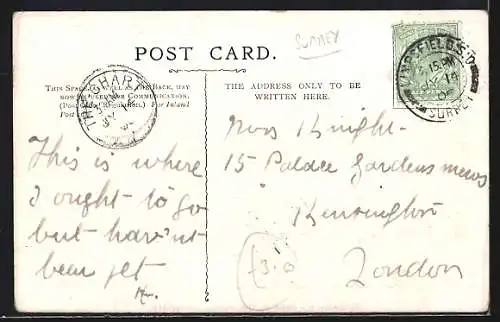 SURREY
POST CARD.
THIS SPACE, AS WELL AS THE BACK, MAY
NOW BE USED FOR COMMUNICATION.
(Post Office Regulation.) For Inland
Post
THE ADDRESS ONLY TO BE
WRITTEN HERE.
SURREY
This is where
I ought to go
but hav'nt
been yet
Miss Knight
15 Palace Gardens mews
Kensington
London